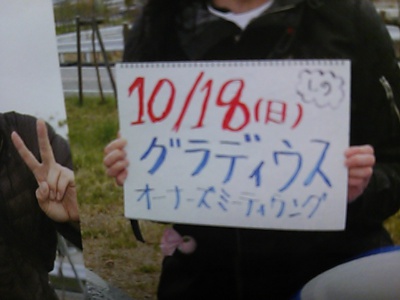 10/18(日)
グラディウス
オーナーズミーティウング